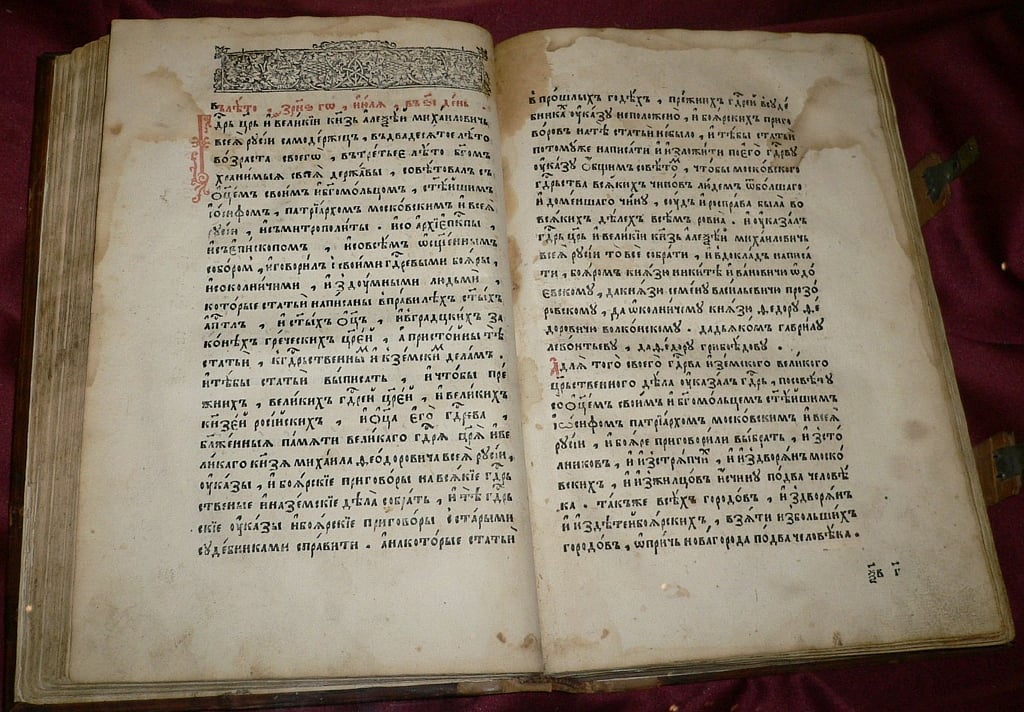 в лѣто, ҂зрн҃ѕ гѡ, їюлѧ, въ ѕ҃і день
гдⷭ҇рь цр҃ь и великїй кн҃зь алеѯѣй михаиловичь,
всеѧ русїи самодержецъ, въ двадесѧтое лѣто
возраста своегѡ, въ третьее лѣто бг҃омъ
хранимыѧ своеѧ державы, совѣтовалъ съ
ѻц҃емъ своимъ и бг҃омольцомъ, ст҃ѣйшимъ
їѡсифомъ, патрїархомъ московскимъ и всеѧ
русїи, и съ митрополиты. и со архїепⷭ҇кпы,
и съ епископомъ, и со всѣмъ ѡсщ҃еннымъ
соборомъ, и говорилъ с своими гдⷭ҇ревыми боѧры,
и с околничими, и з думными людьми,
которые статьи написаны в правилѣхъ ст҃ыхъ
апⷭ҇тлъ, и ст҃ыхъ ѻц҃ъ, и в градцкихъ за
конѣхъ греческихъ цр҃ей, а пристойны тѣ
статьи, к гдⷭ҇рьственнымъ и к земскимъ дѣламъ.
и тѣ бы статьи выписать, и чтобы пре
жнихъ, великихъ гдⷭ҇рей цр҃ей, и великихъ
кн҃зей росїйскихъ, и ѻц҃а его гдⷭ҇рева,
блж҃енныѧ памѧти великаго гдⷭ҇рѧ цр҃ѧ и ве
ликаго кн҃зѧ михаила ѳеѻдоровича всеѧ русїи,
ѹказы, и боѧрскїе приговоры на всѧкїе гдⷭ҇рь
ственые и на земскїе дѣла собрать, и тѣ гдⷭ҇рь
скїе ѹказы и боѧрскїе приговоры с старыми
судебниками справити. а на которые статьи
в прошлыхъ годѣхъ, прежнихъ гдⷭ҇рей в суде
бникахъ ѹказу не положено, и боѧрскихъ приго
воровъ на тѣ статьи не было, и тѣ бы статьи
по тому же написати и изложити по его гдⷭ҇рву
ѹказу ѻбщимъ совѣтомъ, чтобы московского
гдⷭ҇рьства всѧкихъ чиновъ людемъ ѿ болшаго
и до меншаго чину, судъ и росправа была во
всѧкихъ дѣлехъ всѣмъ ровна. и ѹказалъ
гдⷭ҇рь цр҃ь и великїй кн҃зь алеѯѣй михаиловичь
всеѧ русїи то все собрати, и в докладъ написа
ти, боѧромъ кнѧзю никитѣ ивановичю ѡдо
евскому, да кнѧзю семену васильевичю прозо
ровскому, да ѡколничему кнѧзю ѳедору ѳе
доровичю волконскому. да дьѧкомъ гаврилу
леѻнтьеву, да ѳедору грибоѣдову.
а длѧ того своего гдⷭ҇рва и земского великого
црⷭ҇рьственного дѣла ѹказалъ гдⷭ҇рь, по совѣту
со ѻц҃емъ своимъ и бг҃омольцемъ ст҃ѣйшимъ
їѡсифомъ патрїархомъ московскимъ и всеѧ
русїи, и боѧре приговорили выбрать, из сто
лниковъ, и из стрѧпчихъ, и из дворѧнъ моско
вскихъ, и из жилцовъ, ис чину по два человѣ
ка. также всѣхъ городовъ, и з дворѧнъ
и из дѣтей боѧрскихъ, взѧти из болшихъ
городовъ, ѡпричь нова города по два человѣка.